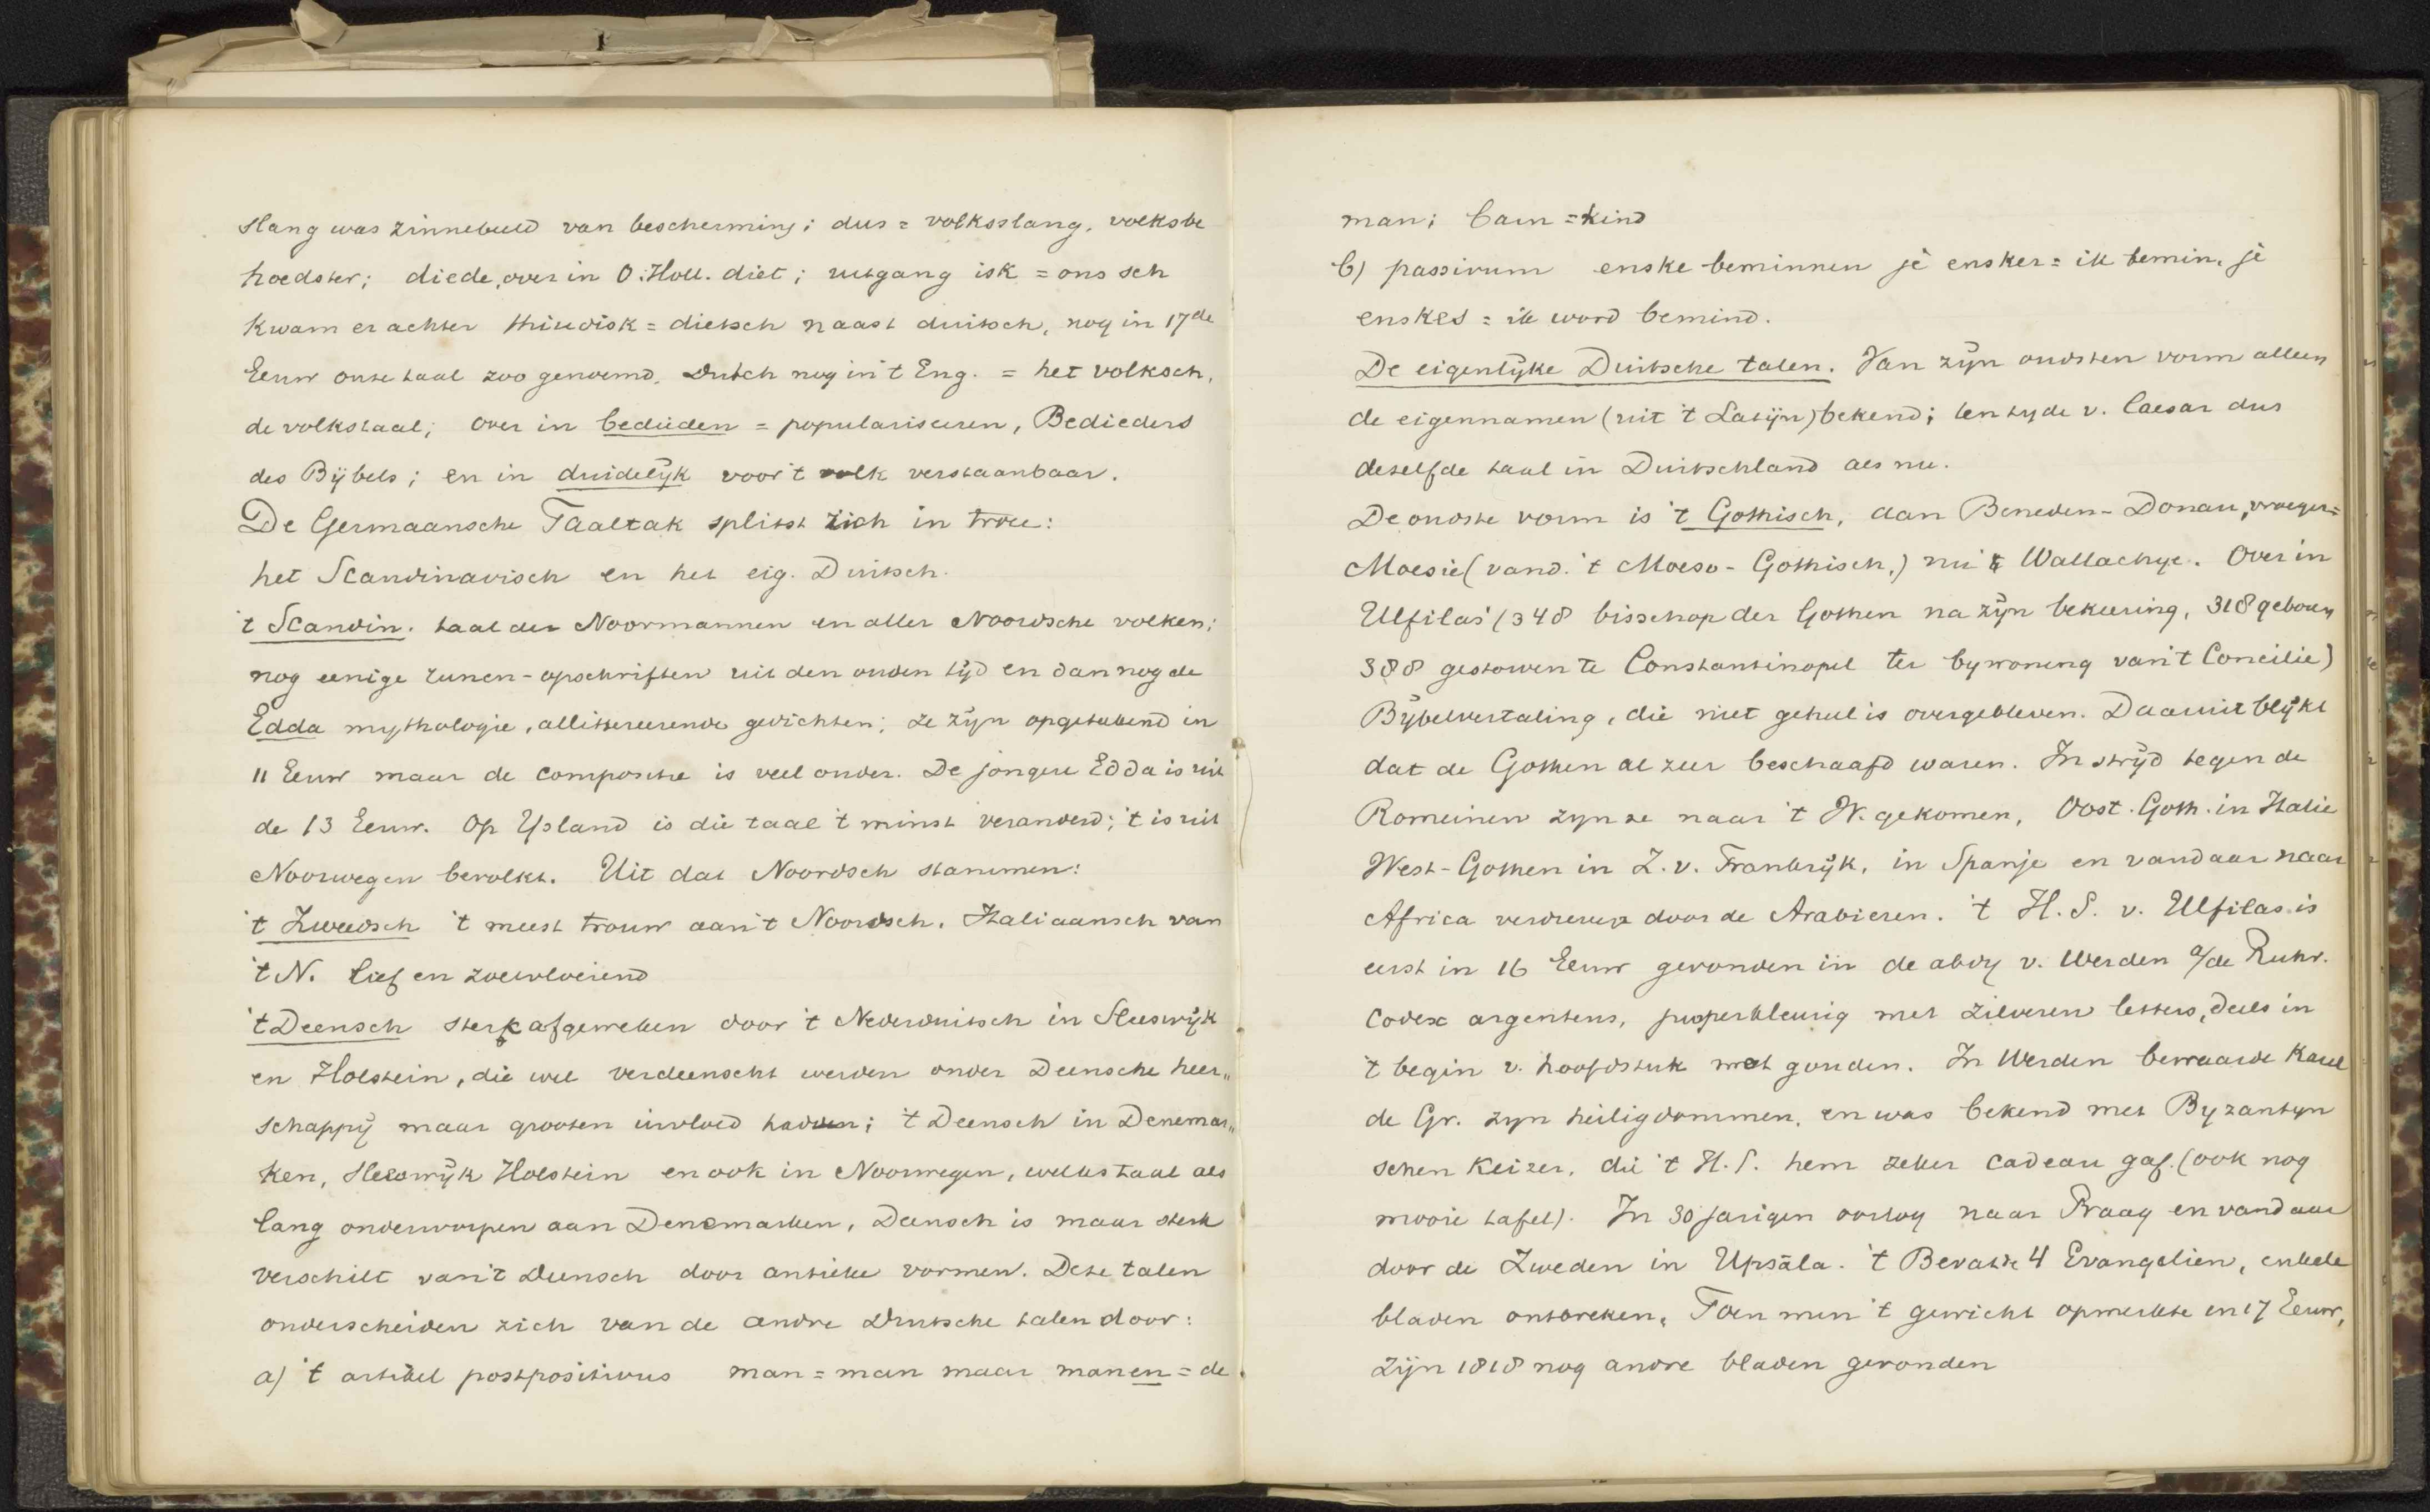 slang was zinnebeeld van bescherming; dus = volksslang, volksbe
hoedster; diede, over in O. Holl. diet; uitgang isk = ons sch
kwam er achter thiudisk = dietsch naast duitsch, nog in 17de
Eeuw onze taal zoo genoemd. Dutch nog in 't Eng. = het volksch,
de volkstaal; over in bedieden = populariseeren, Bedieders
des Bijbels; en in duidelijk voor 't volk verstaanbaar.
De Germaansche Taaltak splitst zich in twee:
het Scandinavisch en het eig. Duitsch.
't Scandin. taal der Noormannen en aller Noordsche volken;
nog eenige runen-opschriften uit den ouden tijd en dan nog de
Edda mythologie, allittereerende gedichten; ze zijn opgeteekend in
11 Eeuw maar de compositie is veel ouder. De jongere Edda is uit
de 13 Eeuw. Op IJsland is die taal 't minst veranderd; 't is uit
Noorwegen bevolkt. Uit dat Noordsch stammen:
't Zweedsch 't meest trouw aan 't Noordsch. Italiaansch van
't N. lief en zoetvloeiend
't Deensch sterk afgeweken door 't Nederduitsch in Sleeswijk
en Holstein, die wel verdeenscht werden onder Deensche heer„
schappij maar grooten invloed hadden; 't Deensch in Denemar„
ken, Sleeswijk Holstein en ook in Noorwegen, welks taal als
lang onderworpen aan Denemarken, Deensch is maar sterk
verschilt van 't Deensch door antieke vormen. Deze talen
onderscheiden zich van de andre Duitsche talen door:
a) 't artikel postpositivus man = man maar manen = de
man; barn = kind
b) passivum enske beminnen jè ensker = ik bemin, jè
enskes = ik word bemind.
De eigenlijke Duitsche talen. Van zijn oudsten vorm alleen
de eigennamen (uit 't Latijn) bekend; ten tyde v. Caesar dus
dezelfde taal in Duitschland als nu.
De oudste vorm is 't Gothisch, aan Beneden-Donau, vroeger =
Moesie (vand. 't Moeso-Gothisch,) nu Wallachye. Over in
Ulfilas' (348 bisschop der Gothen na zijn bekeering, 318 geboren
388 gestorven te Constantinopel ter bywoning van 't Concilie)
Bijbelvertaling, die niet geheel is overgebleven. Daaruit blijkt
dat de Gothen al zeer beschaafd waren. In strijd tegen de
Romeinen zyn ze naar 't W. gekomen, Oost. Goth. in Italie
West-Gothen in Z. v. Frankrijk, in Spanje en vandaar naar
Africa verdreven door de Arabieren. 't H.S. v. Ulfilas is
eerst in 16 Eeuw gevonden in de abdy v. Werden a/de Ruhr.
Codex argenteus, purperkleurig met zilveren letters, deels in
't begin v. hoofdstuk met gouden. In Werden bewaarde Karel
de Gr. zyn heiligdommen, en was bekend met Byzantyn
schen Keizer, die 't H.S. hem zeker cadeau gaf. (ook nog
mooie tafel). In 30 jarigen oorlog naar Praag en vandaar
door de Zweden in Upsāla. 't Bevatte 4 Evangelien, enkele
bladen ontbreken, Toen men 't gewicht opmerkte in 17 Eeuw,
zijn 1818 nog andre bladen gevonden